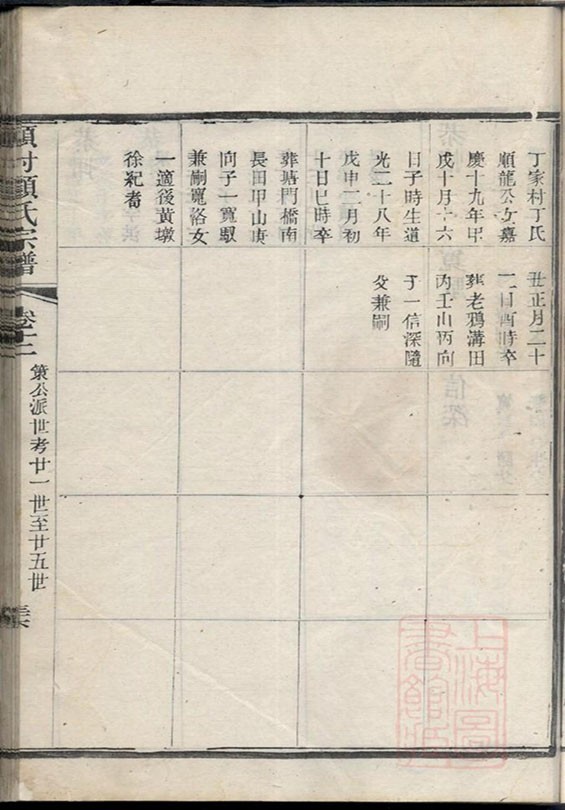 丁家村丁氏
順龍公女嘉
慶十九年甲
戌十月十六
日子時生道
光二十八年
戊申二月初
十日巳時卒
葬塘門橋南
長田甲山庚
向子一寬馭
兼嗣寬洛女
一適後黃墩
徐紀耆
丑正月二十
一日酉時卒
葬老鴉溝田
丙壬山丙向
子一信深隨
父兼嗣
顧氏宗譜
卷十二
策公派世考廿一世至廿五世
上海圖
書館藏